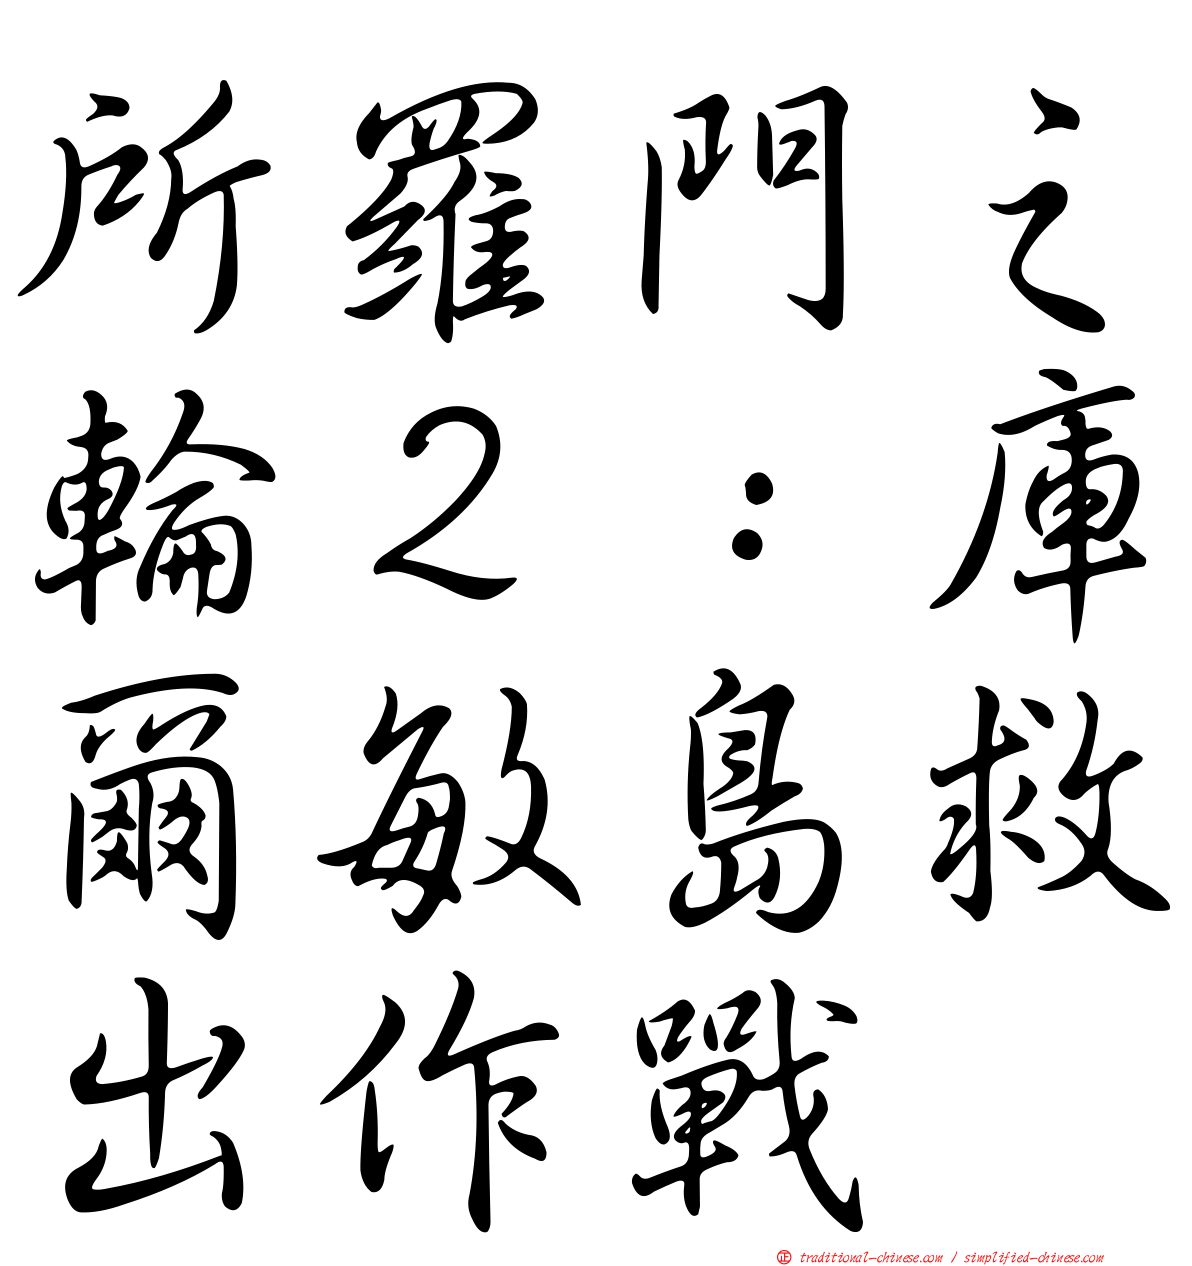 所羅門之
輪２：庫
爾敏島救
出作戰
正 traditional-chinese.com / simplified-chinese.com